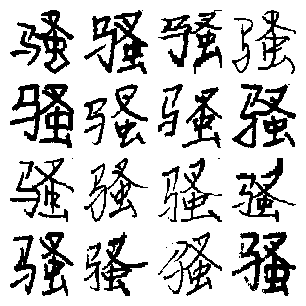 骚骚骚骚
骚骚骚骚
骚骚骚骚
骚骚骚骚